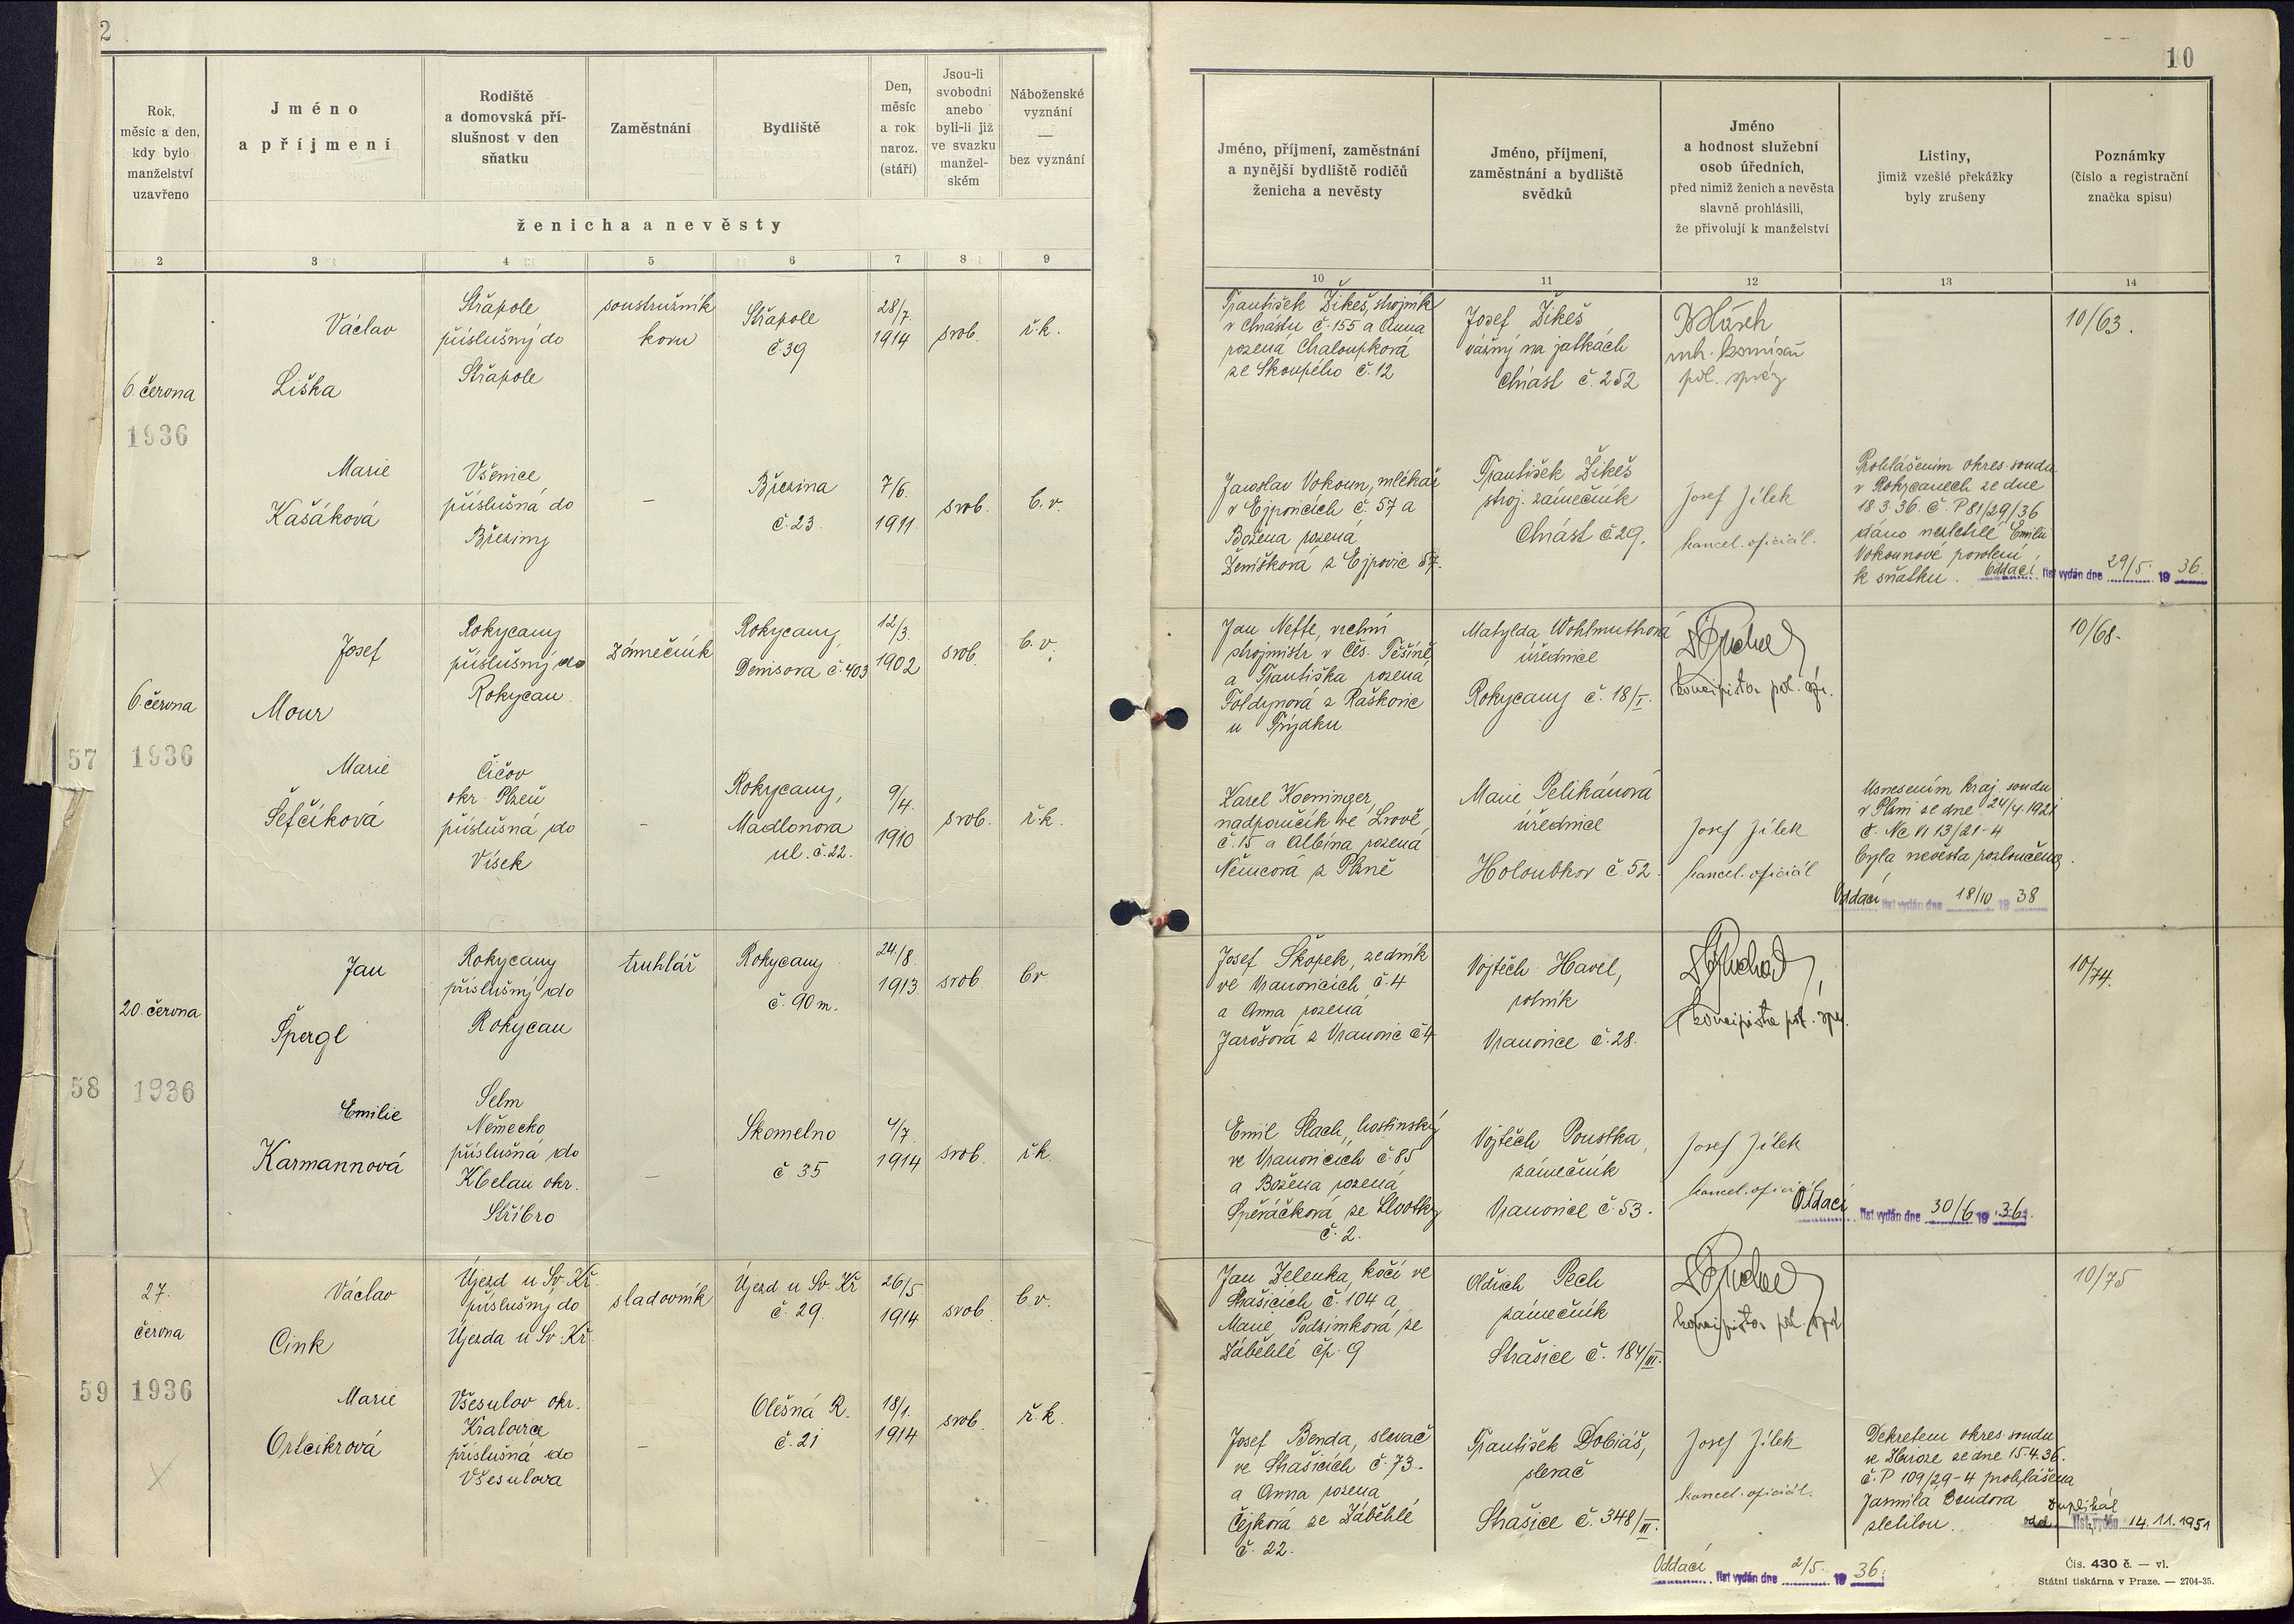 2
Rok,
měsíc a den,
kdy bylo
manželství
uzavřeno
Jméno
a příjmení
Rodiště
a domovská pří-
slušnost v den
sňatku
Zaměstnání
Bydliště
Den,
měsíc
a rok
naroz.
(stáří)
Jsou-li
svobodni
anebo
byli-li již
ve svazku
manžel-
ském
Náboženské
vyznání
—
bez vyznání
ženicha a nevěsty
2 3 4 5 6 7 8 9
6. června
1936
Václav
Liška
Střapole
příslušný do
Střapole
soustružník
kovu
Střapole
č 39
28/7.
1914
svob.
ř.k.
Marie
Kašáková
Všenice
příslušná do
Březiny
—
Březina
č. 23.
7/6.
1911.
svob.
b.v.
57
6. června
1936
Josef
Mour
Rokycany
příslušný do
Rokycan
zámečník
Rokycany,
Denisova č. 403
12/3.
1902
svob.
b.v.
Marie
Šefčíková
Čičov
okr. Plzeň
příslušná do
Vísek
—
Rokycany,
Madlonova
ul. č. 22.
9/4.
1910
svob.
ř.k.
58
20. června
1936
Jan
Špergl
Rokycany
příslušný do
Rokycan
truhlář
Rokycany
č. 90 m.
24/8.
1913.
svob.
bv
Emilie
Karmannová
Selm
Německo
příslušná do
Kbelan okr.
Stříbro
—
Skomelno
č 35
4/7.
1914
svob.
ř.k.
59
27.
června
1936
Václav
Cink
Újezd u Sv. Kř.
příslušný do
Újezda u Sv. Kř.
sladovník
Újezd u Sv. Kř
č. 29.
26/5
1914
svob
b.v.
Marie
Ortcikrová
Všesulov okr.
Kralovice
příslušná do
Všesulova
—
Olešná R.
č. 21
18/1.
1914
svob.
ř.k.
10
Jméno, příjmení, zaměstnání
a nynější bydliště rodičů
ženicha a nevěsty
Jméno, příjmení,
zaměstnání a bydliště
svědků
Jméno
a hodnost služební
osob úředních,
před nimiž ženich a nevěsta
slavně prohlásili,
že přivolují k manželství
Listiny,
jimiž vzešlé překážky
byly zrušeny
Poznámky
(číslo a registrační
značka spisu)
10 11 12 13 14
František Žikeš, strojník
v Chrástu č. 155 a Anna
rozená Chaloupková
ze Skoupého č. 12
Josef Žikeš
vážný na jatkách
Chrást č. 252
komisař
pol. správy
10/63.
Jaroslav Vokoun, mlékař
v Ejpovicích č. 57 a
Božena rozená
Ženíšková z Ejpovic 57.
František Žikeš
stroj. zámečník
Chrást č 29.
Josef Jílek
kancel. oficiál.
Prohlášením okres. soudu
v Rokycanech ze dne
18.3.36. č. P 81/29/36
dáno nezletilé Emilii
Vokounové povolení
k sňatku.
Oddací list vydán dne 29/5. 19 36.
Jan Neffe, vrchní
strojmistr v Čes. Těšíně
a Františka rozená
Foldynová z Raškovic
u Frýdku
Matylda Wohlmuthová
úřednice
Rokycany č. 18/I.
koncipista pol. spr.
10/68.
Karel Koeninger,
nadporučík ve Lvově
č. 15 a Albína rozená
Němcová z Plzně
Marie Pelikánová
úřednice
Holoubkov č. 52.
Josef Jílek
kancel. oficiál
Usnesením kraj. soudu
v Plzni ze dne 24/4. 1921
č. Nc VI 13/21-4
byla nevěsta rozloučena.
Oddací list vydán dne 18/10 19 38
Josef Škopek, zedník
ve Vranovicích č. 4
a Anna rozená
Jarošová z Vranovic č 4
Vojtěch Havel,
rolník
Vranovice č. 28.
koncipista pol. spr.
10/74.
Emil Slach, hostinský
ve Vranovicích č. 85
a Božena rozená
Speráčková ze
č. 2.
Vojtěch Poustka,
zámečník
Vranovice č. 53.
Josef Jílek
kancel. oficiál
Oddací list vydán dne 30/6 19 36.
Jan Zelenka, kočí ve
Strašicích č. 104 a
Marie Podzimková ze
Záběhlé čp. 9
Oldřich Pech
zámečník
Strašice č. 184/III.
koncipista pol. spr.
10/75
Josef Benda, slevač
ve Strašicích č. 73.
a Anna rozená
Čejková ze Záběhlé
č. 22.
František Dobiáš,
slevač
Strašice č. 348/III.
Josef Jílek
kancel. oficiál.
Dekretem okres. soudu
ve Zbiroze ze dne 15.4.36.
č. P 109/29-4 prohlášena
Jarmila Bendova
zletilou.
Duplikát
odd. list vydán 14.11.1951
Oddací list vydán dne 2/5. 19 36.
Čís. 430 č. — vl.
Státní tiskárna v Praze. — 2704-35.